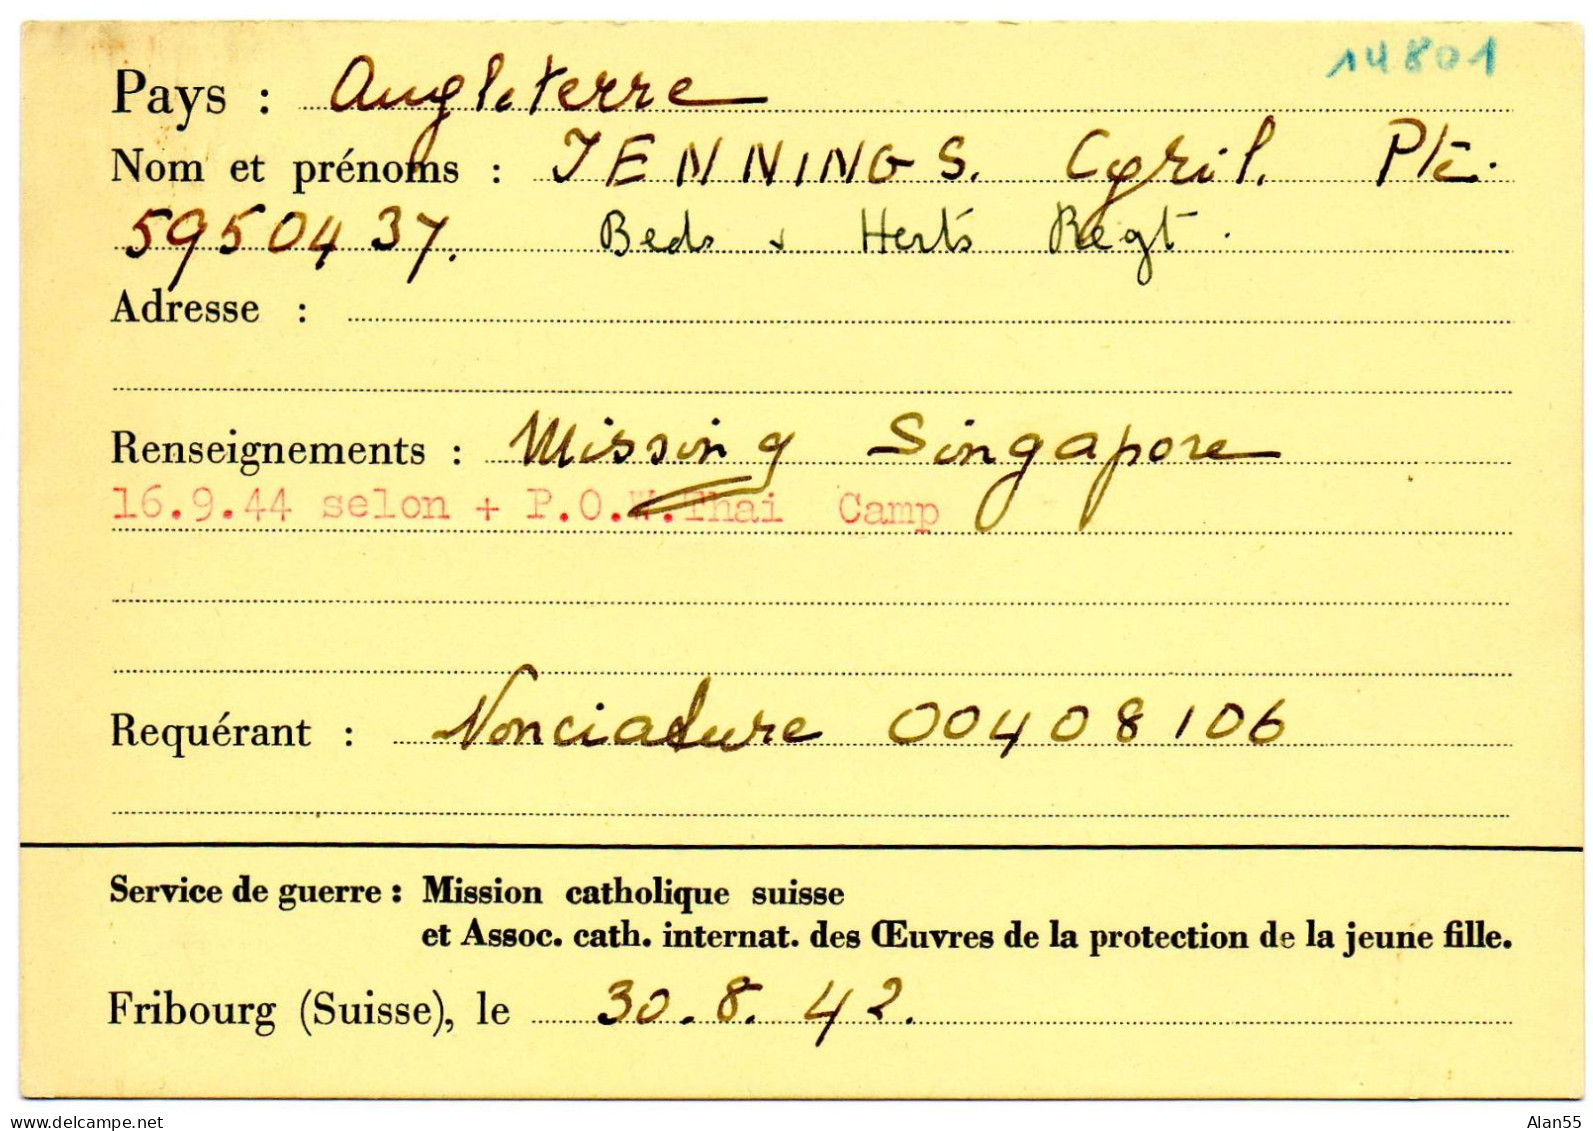 14801
Pays : Angleterre
Nom et prénoms : JENNINGS. Cyril. Pte.
5950437. Beds & Herts Regt.
Adresse :
Renseignements : Missing Singapore
16.9.44 selon + P.O.W.Thai Camp
Requérant : Nonciature 00408106
Service de guerre : Mission catholique suisse
et Assoc. cath. internat. des Œuvres de la protection de la jeune fille.
Fribourg (Suisse), le 30.8.42.
www.delcampe.net
Alan55